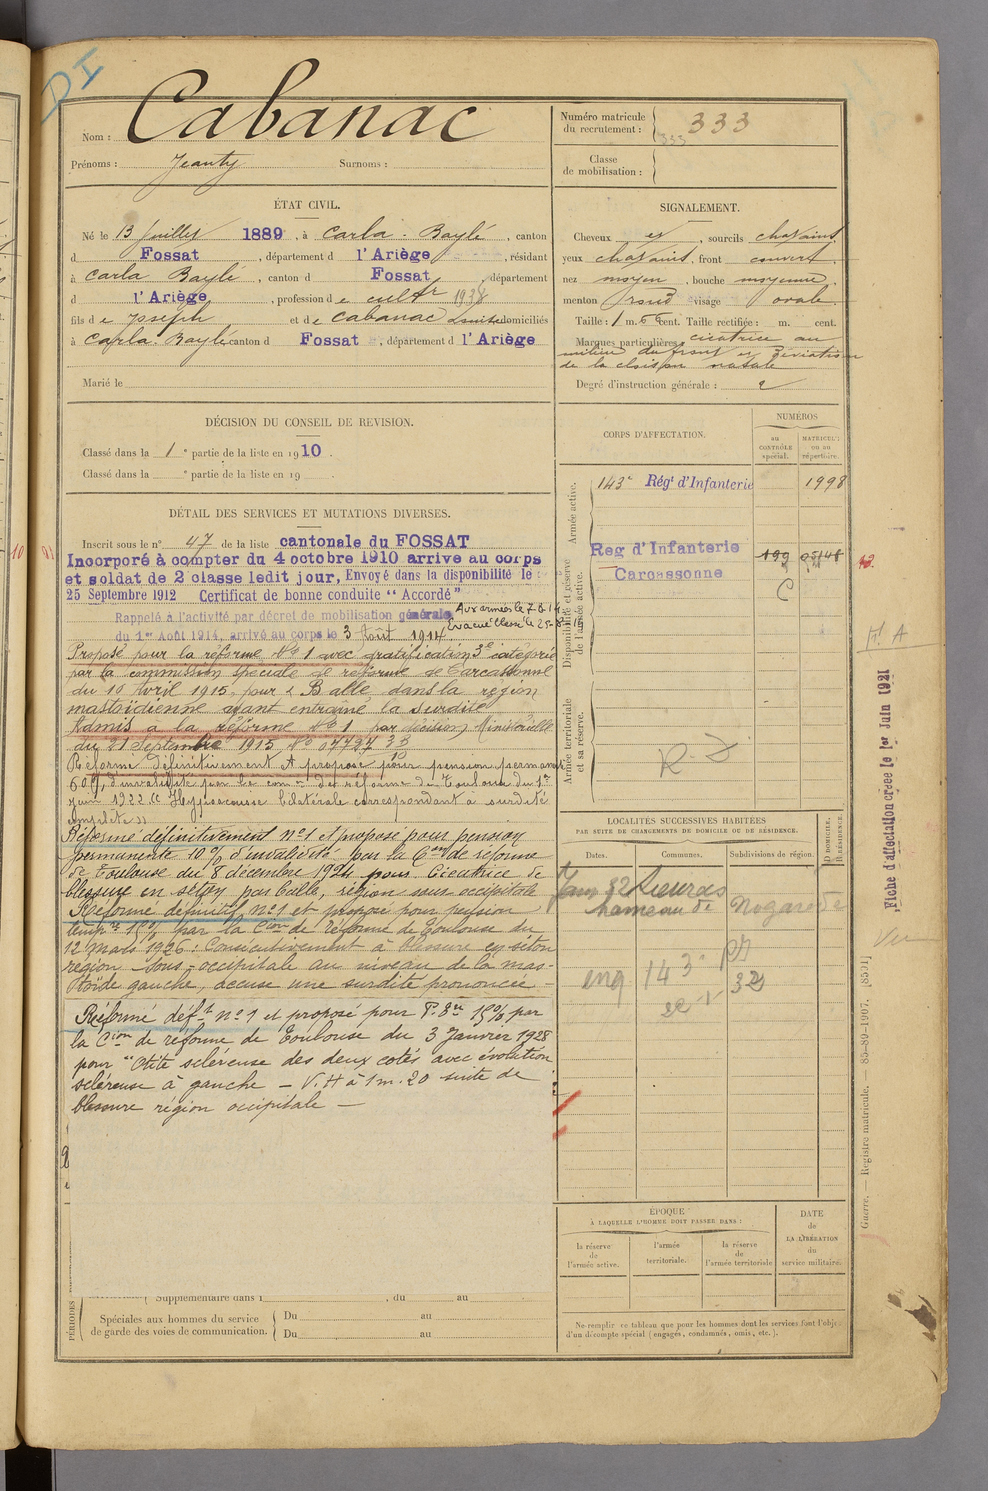 DI
Nom : Cabanac
Prénoms : Jeanty Surnoms :
Numéro matricule du recrutement : 333
333
Classe de mobilisation :
ÉTAT CIVIL.
Né le 13 juillet 1889, à Carla-Baylé, canton
d Fossat, département d l'Ariège, résidant
à Carla Baylé, canton d Fossat, département
d l'Ariège, profession de cultr 1938
fils de Joseph et de Cabanac Louise domiciliés
à Carla-Baylé canton d Fossat, département d l'Ariège
Marié le
SIGNALEMENT.
Cheveux et, sourcils chatains
yeux chatains, front couvert
nez moyen, bouche moyenne
menton rond visage ovale
Taille : 1 m. 66 cent. Taille rectifiée : m. cent.
Marques particulières cicatrice au
milieu du front et déviation
de la cloison nasale
Degré d'instruction générale : 2
DÉCISION DU CONSEIL DE REVISION.
Classé dans la 1e partie de la liste en 1910.
Classé dans la e partie de la liste en 19 .
DÉTAIL DES SERVICES ET MUTATIONS DIVERSES.
Inscrit sous le n° 47 de la liste cantonale du FOSSAT
Incorporé à compter du 4 octobre 1910 arrivé au corps
et soldat de 2 classe ledit jour, Envoyé dans la disponibilité le
25 Septembre 1912 Certificat de bonne conduite "Accordé"
Rappelé à l'activité par décret de mobilisation générale
Aux armées le 7.8.14
du 1er Août 1914, arrivé au corps le 3 Août 1914.
Evacué blessé le 25-8-
Proposé pour la réforme No 1 avec gratification 3e catégorie
par la commission spéciale de réforme de Carcassonne
du 10 Avril 1915, pour Balle dans la région
mastoïdienne ayant entraîné la surdité
Admis à la réforme No 1 par décision Ministérielle
du 21 Septembre 1915 No 07727 33
Réformé Définitivement et proposé pour pension permante
60%, d'invalidité par la comon de réforme de Toulouse du 1er
juin 1922 "Hypoacousie bilatérale correspondant à surdité
complète"
Réforme définitivement n°1 et proposé pour pension
permanente 10% d'invalidité par la Con de réforme
de Toulouse du 8 décembre 1924 pour Cicatrice de
blessure en séton par balle, région sous occipitale
Réforme définitif n°1 et proposé pour pension
tempre 15% par la Cion de Réforme de Toulouse du
12 mars 1926 : Consécutivement à blessure en séton
région sous-occipitale au niveau de la mas-
toïde gauche, accuse une surdité prononcée -
Réformé déft n°1 et proposé pour P. 15% par
la Cion de réforme de Toulouse du 3 Janvier 1928
pour "Otite scléreuse des deux cotés avec évolution
scléreuse à gauche - V.H à 1m.20 suite de
blessure région occipitale -
PÉRIODES
Supplémentaire dans l , du au
Spéciales aux hommes du service
de garde des voies de communication.
Du au
Du au
CORPS D'AFFECTATION.
NUMÉROS
au CONTRÔLE spécial.
MATRICULE ou au répertoire.
Armée active.
143e Régt d'Infanterie 1998
Disponibilité et réserve de l'armée active.
Reg d'Infanterie
Carcassonne
Armée territoriale et sa réserve.
R. D
LOCALITÉS SUCCESSIVES HABITÉES
PAR SUITE DE CHANGEMENTS DE DOMICILE OU DE RÉSIDENCE.
Dates. Communes. Subdivisions de région.
D DOMICILE. R RÉSIDENCE.
hameau de Nogarède
143e
32
ÉPOQUE
À LAQUELLE L'HOMME DOIT PASSER DANS :
la réserve de l'armée active.
l'armée territoriale.
la réserve de l'armée territoriale
DATE de LA LIBÉRATION du service militaire.
Ne remplir ce tableau que pour les hommes dont les services font l'objet
d'un décompte spécial (engagés, condamnés, omis, etc.).
Fiche d'affectation créée le 1er Juin 1921
Vu
Guerre. — Registre matricule. — 85-89-1907. [8501]